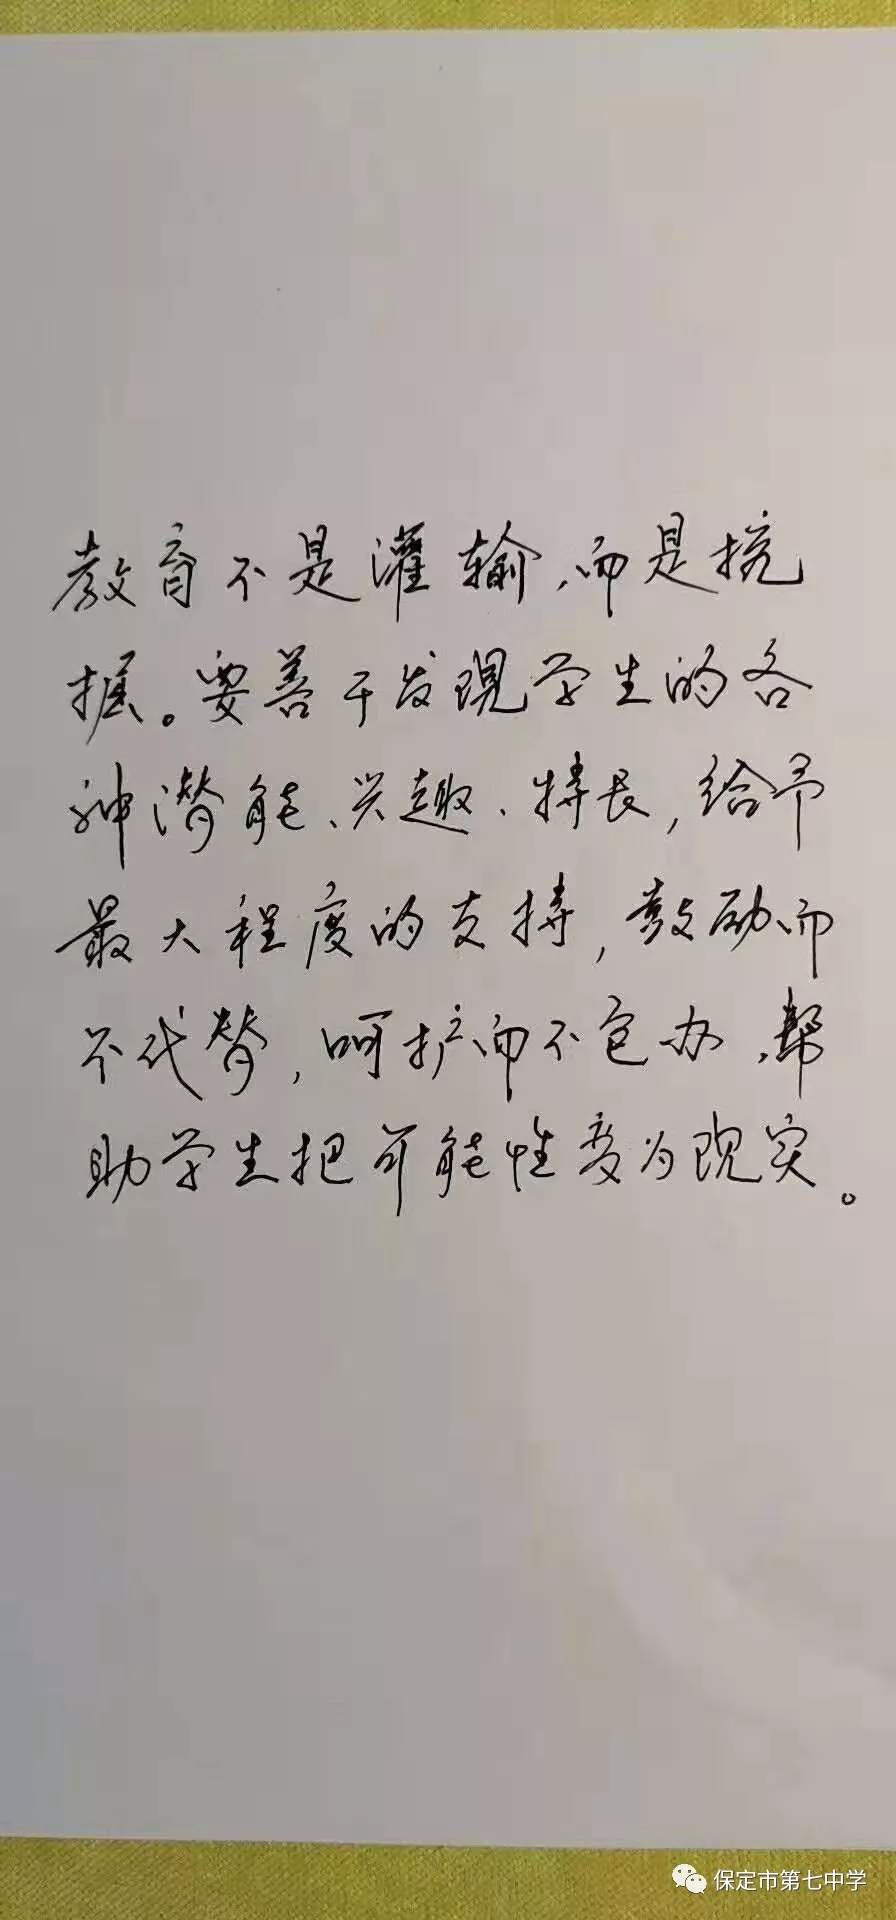 教育不是灌输,而是挖
掘。要善于发现学生的各
种潜能、兴趣、特长,给予
最大程度的支持,鼓励而
不代替,呵护而不包办,帮
助学生把可能性变为现实。
保定市第七中学